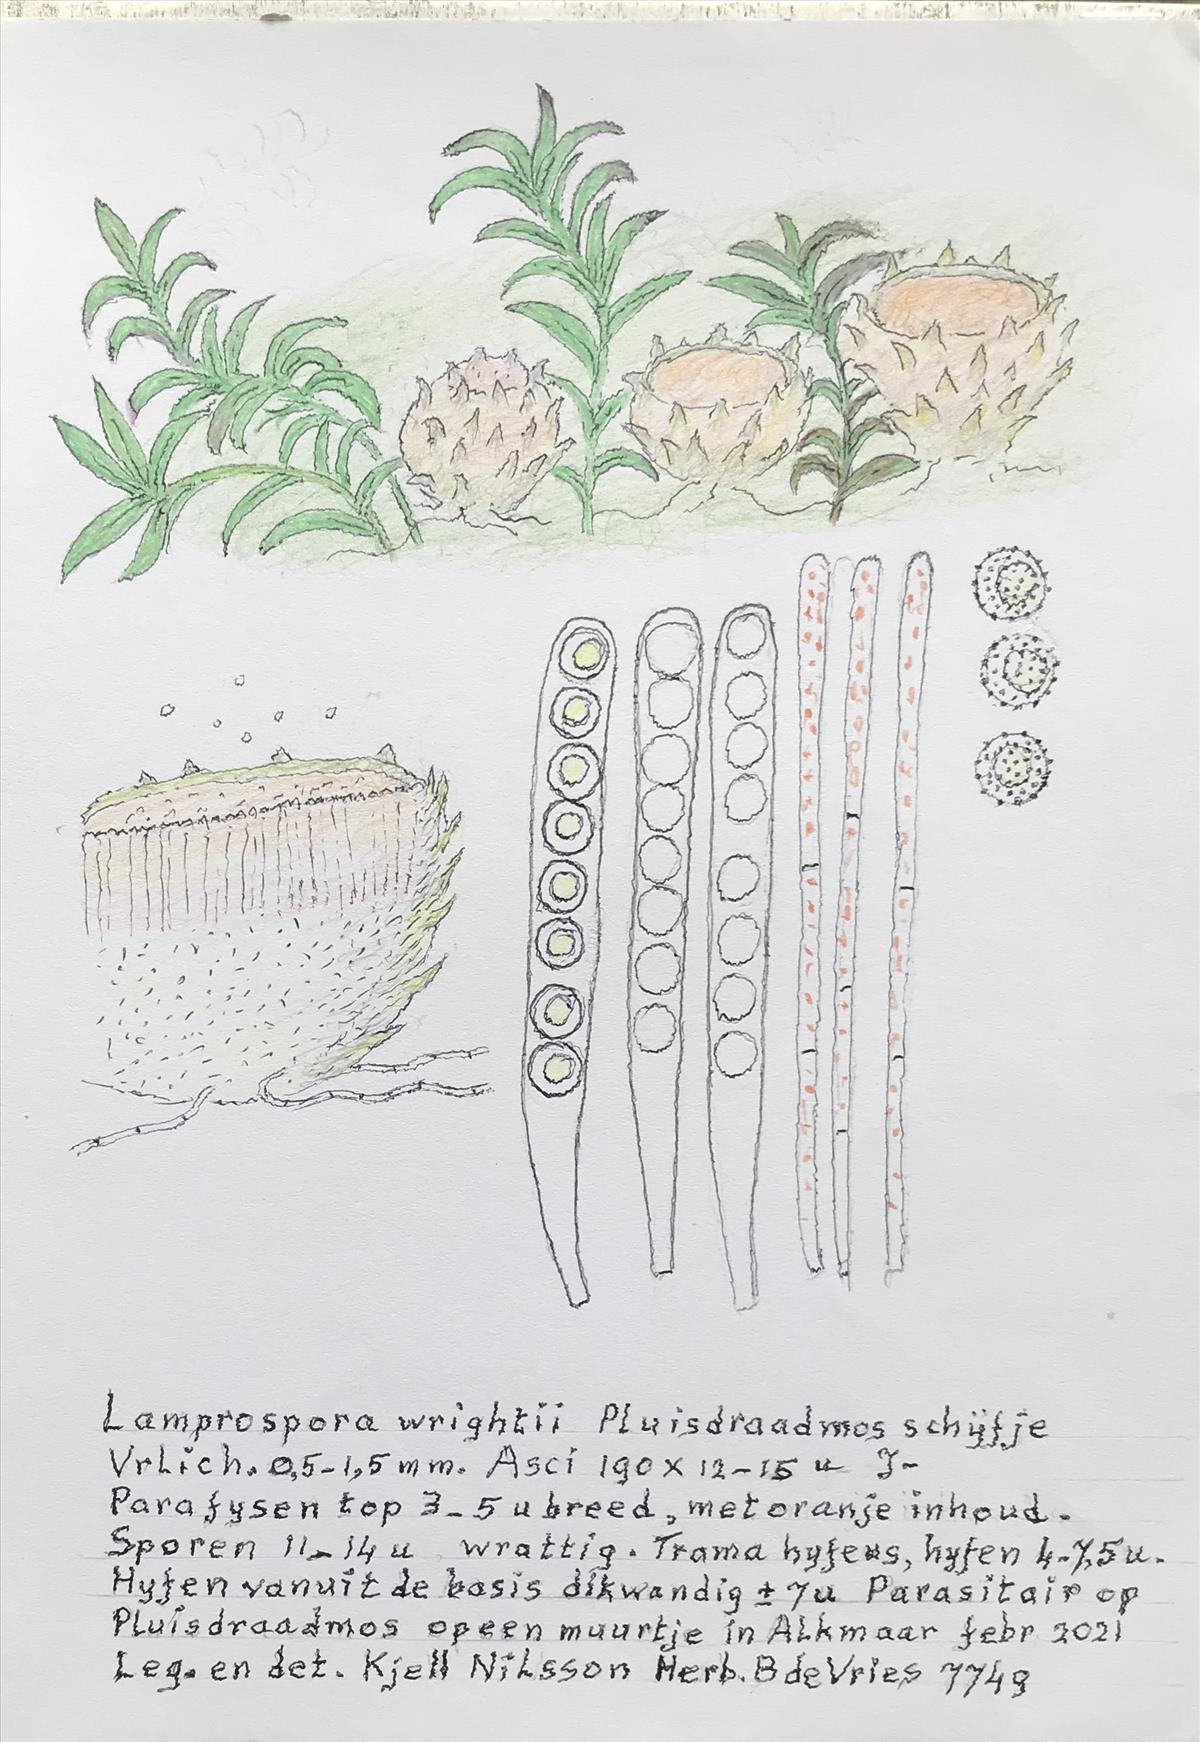 Lamprospora wrightii Pluisdraadmos schijfje
Vrlich. 0,5-1,5 mm. Asci 190 x 12-15 u J-
Parafysen top 3-5 u breed, met oranje inhoud.
Sporen 11-14 u wrattig. Trama hyfeus, hyfen 4-7,5u.
Hyfen vanuit de basis dikwandig ± 7u Parasitair op
Pluisdraadmos op een muurtje in Alkmaar febr 2021
Leg. en det. Kjell Nilsson Herb. B de Vries 7749